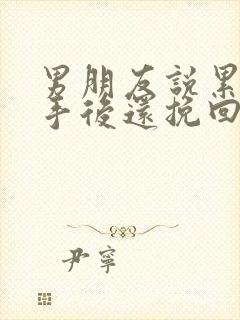 男朋友說累
手後還挽回
尹寧